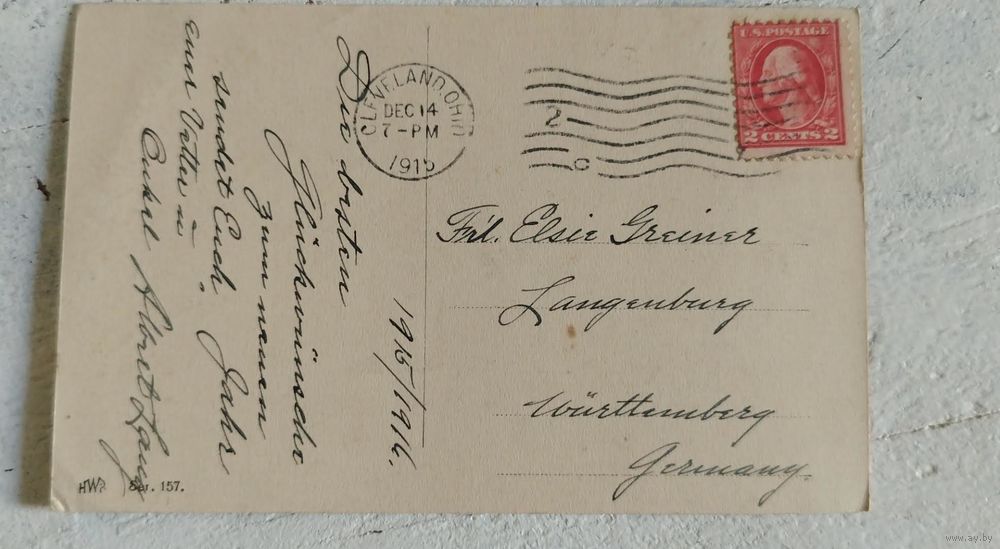 Die besten
Glückwünsche
zum neuen
Jahr
sendet Euch
euer Vetter u
Onkel Albert Lang
1915/1916.
CLEVELAND, OHIO
DEC 14
7-PM
1915
2
C
U.S. POSTAGE
2 CENTS 2
Frl. Elsie Greiner
Langenburg
Württemberg
Germany.
HWB Ser. 157.
www.ay.by